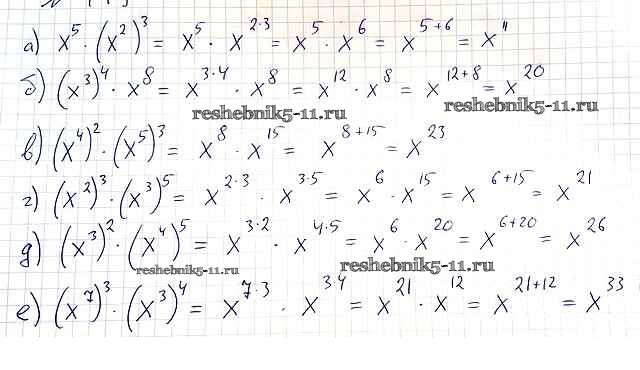 а) x⁵·(x²)³ = x⁵ · x²·³ = x⁵ · x⁶ = x⁵⁺⁶ = x¹¹
б) (x³)⁴ · x⁸ = x³·⁴ · x⁸ = x¹² · x⁸ = x¹²⁺⁸ = x²⁰
reshebnik5-11.ru reshebnik5-11.ru
в) (x⁴)² · (x⁵)³ = x⁸ · x¹⁵ = x⁸⁺¹⁵ = x²³
г) (x²)³ · (x³)⁵ = x²·³ · x³·⁵ = x⁶ · x¹⁵ = x⁶⁺¹⁵ = x²¹
д) (x³)² · (x⁴)⁵ = x³·² · x⁴·⁵ = x⁶ · x²⁰ = x⁶⁺²⁰ = x²⁶
reshebnik5-11.ru reshebnik5-11.ru
е) (x⁷)³ · (x³)⁴ = x⁷·³ · x³·⁴ = x²¹ · x¹² = x²¹⁺¹² = x³³